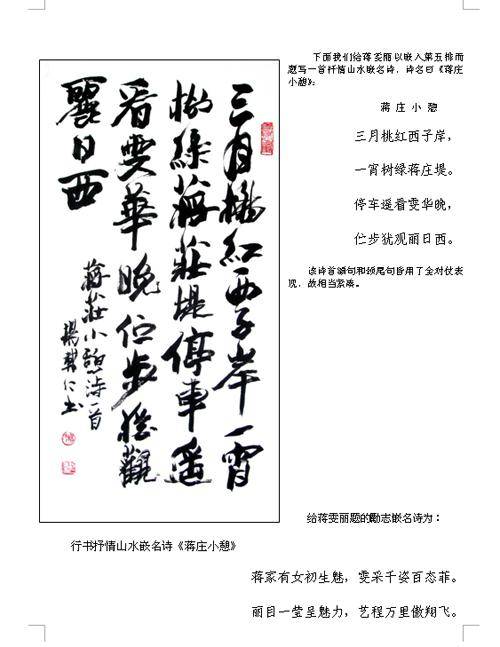 三月桃红西子岸一宵
樹绿蒋莊堤停車遥
看雯華晚伫步猶觀
麗日西
蒋莊小憩诗一首
行书抒情山水嵌名诗《蒋庄小憩》
下面我们给蒋雯丽以嵌入第五排而
题写一首抒情山水嵌名诗，诗名曰《蒋庄
小憩》：
蒋庄小憩
三月桃红西子岸，
一宵树绿蒋庄堤。
停车遥看雯华晚，
伫步犹观丽日西。
该诗首颔句和颈尾句皆用了全对仗表
现，故相当紧凑。
给蒋雯丽题的励志嵌名诗为：
蒋家有女初生魅，雯采千姿百态菲。
丽目一莹呈魅力，艺程万里傲翔飞。